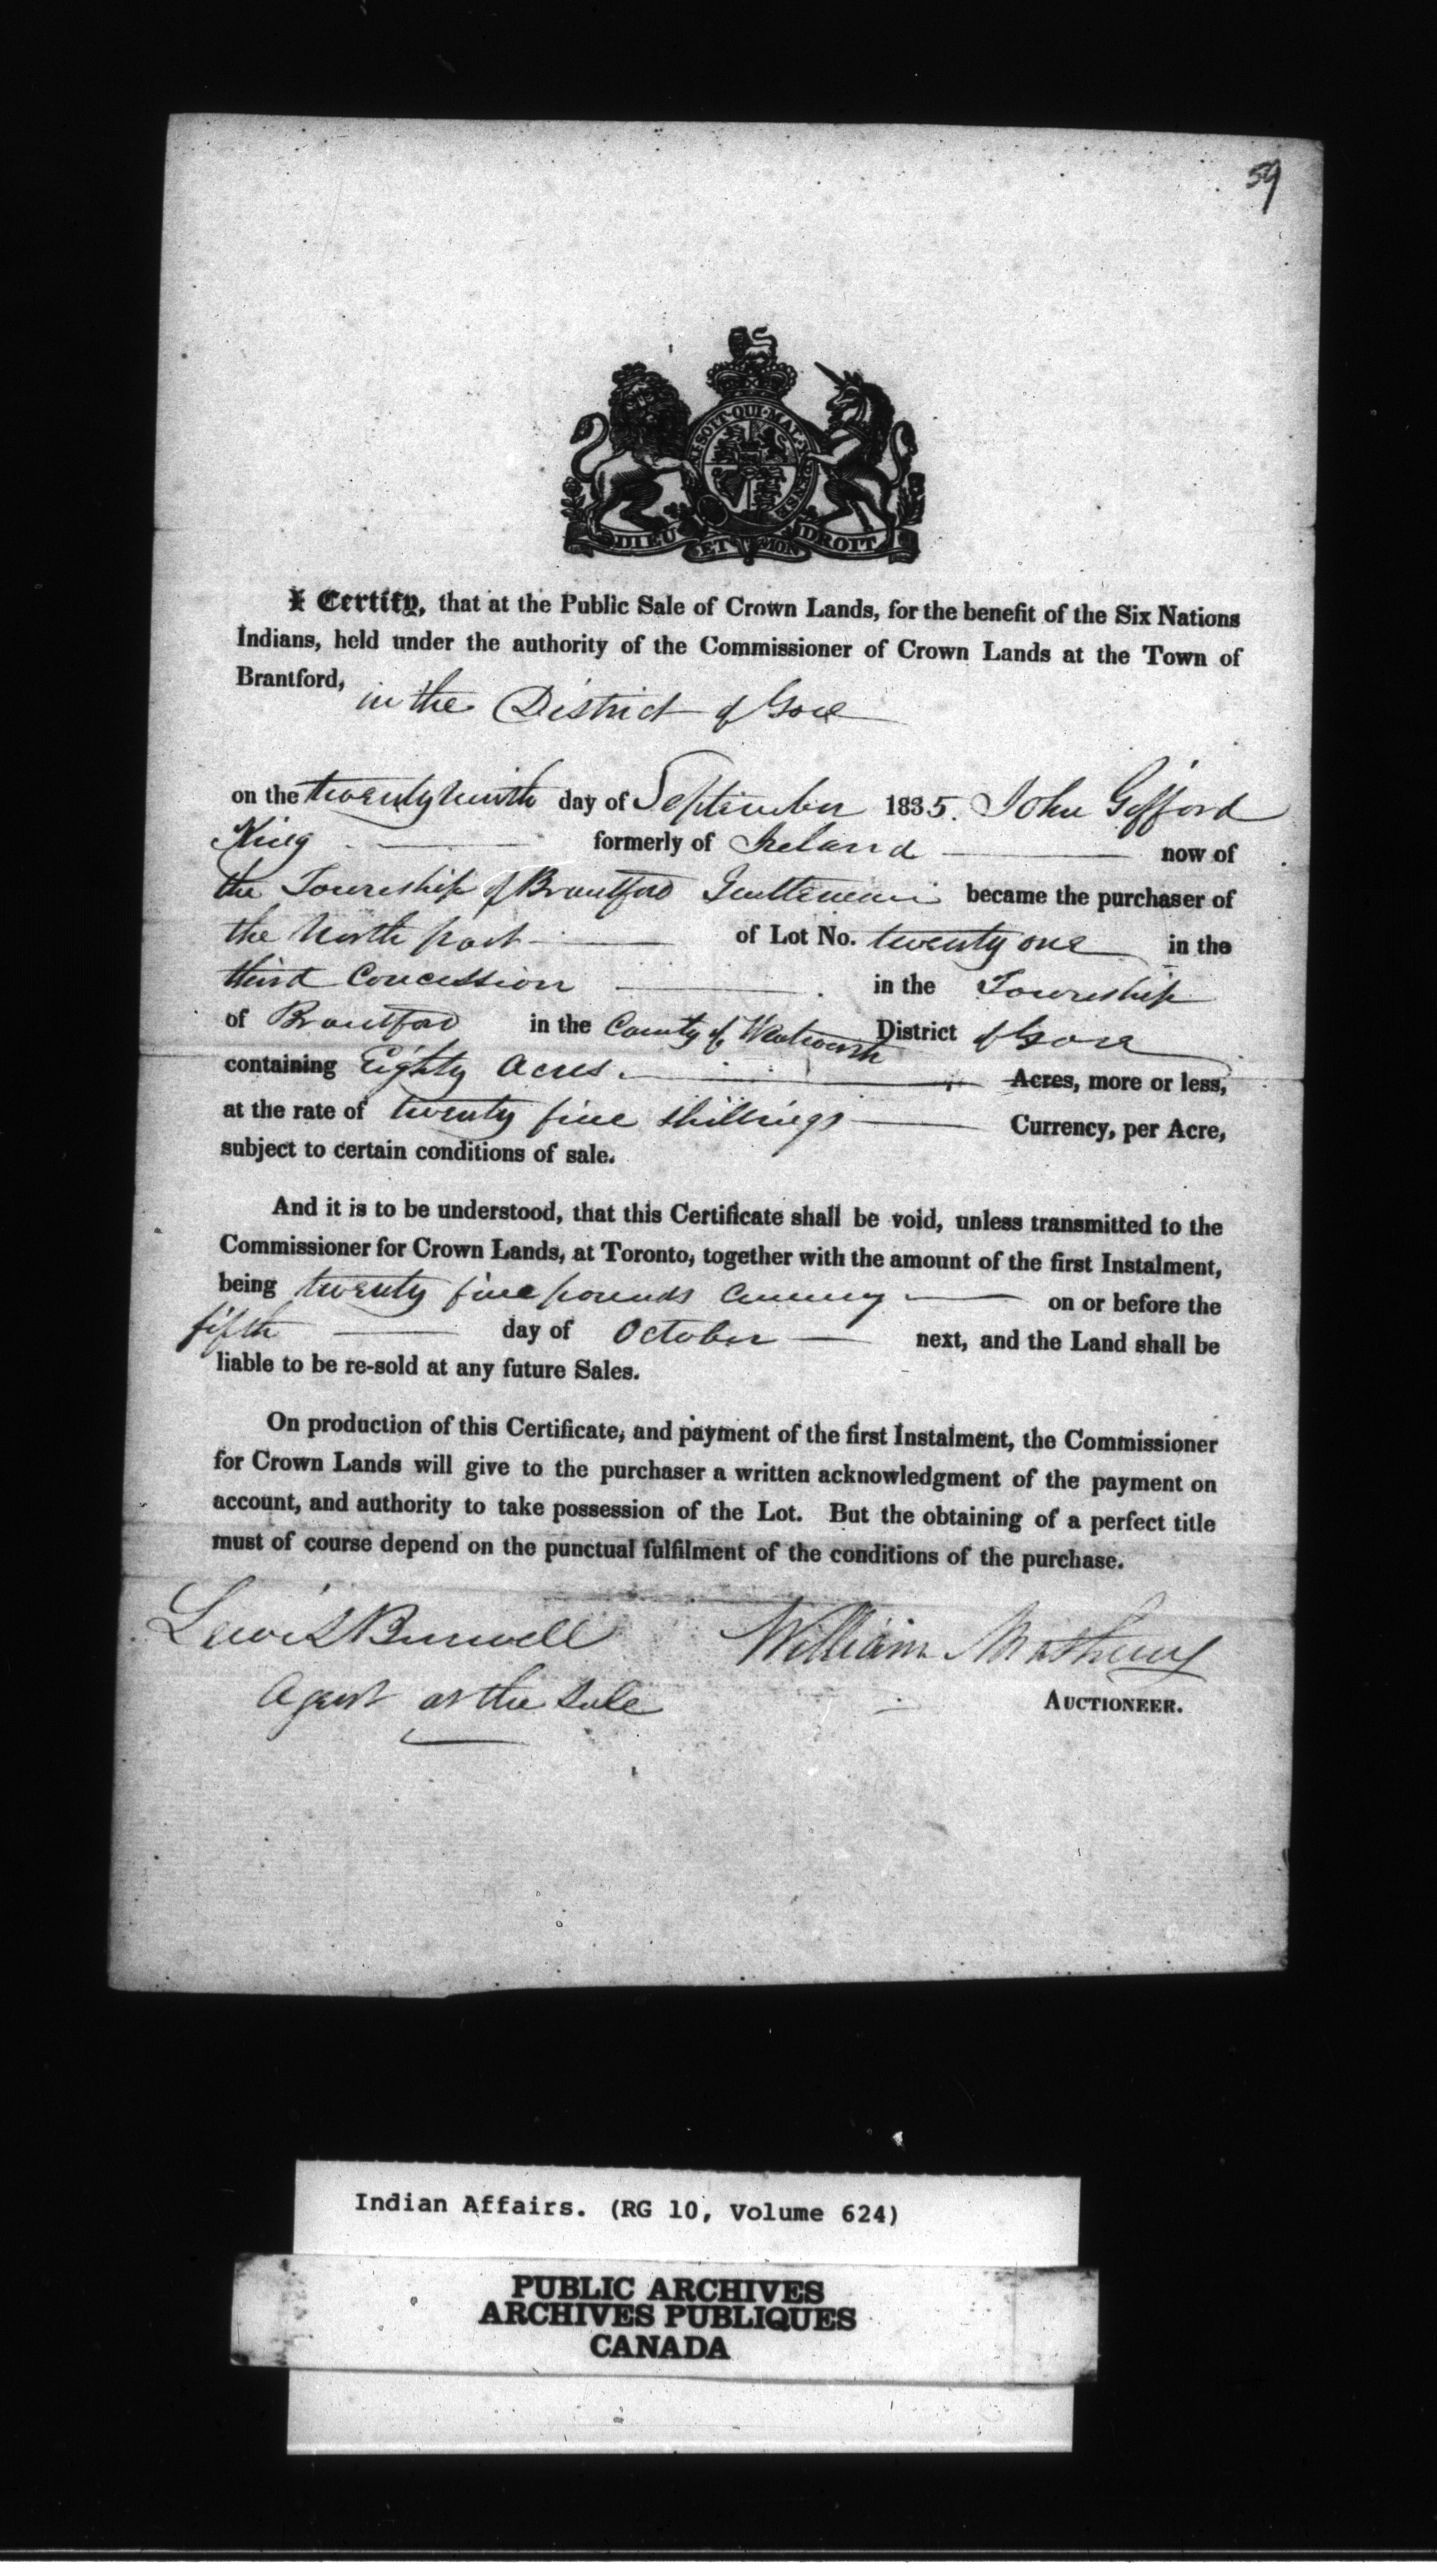 59
SOIT·QUI·MAL·Y
PENSE
DIEU ET MON DROIT
I Certify, that at the Public Sale of Crown Lands, for the benefit of the Six Nations
Indians, held under the authority of the Commissioner of Crown Lands at the Town of
Brantford, in the District of Gore
on the twenty ninth day of September 1835. John Gifford
King formerly of Ireland now of
the Township of Brantford Gentleman became the purchaser of
the North part of Lot No. twenty one in the
third Concession in the Township
of Brantford in the County of Wentworth District of Gore
containing Eighty Acres. Acres, more or less,
at the rate of twenty five shillings Currency, per Acre,
subject to certain conditions of sale.
And it is to be understood, that this Certificate shall be void, unless transmitted to the
Commissioner for Crown Lands, at Toronto, together with the amount of the first Instalment,
being twenty five pounds Currency on or before the
fifth day of October next, and the Land shall be
liable to be re-sold at any future Sales.
On production of this Certificate, and payment of the first Instalment, the Commissioner
for Crown Lands will give to the purchaser a written acknowledgment of the payment on
account, and authority to take possession of the Lot. But the obtaining of a perfect title
must of course depend on the punctual fulfilment of the conditions of the purchase.
Lewis Burwell William Mathews
Agent at the Sale AUCTIONEER.
Indian Affairs. (RG 10, Volume 624)
PUBLIC ARCHIVES
ARCHIVES PUBLIQUES
CANADA